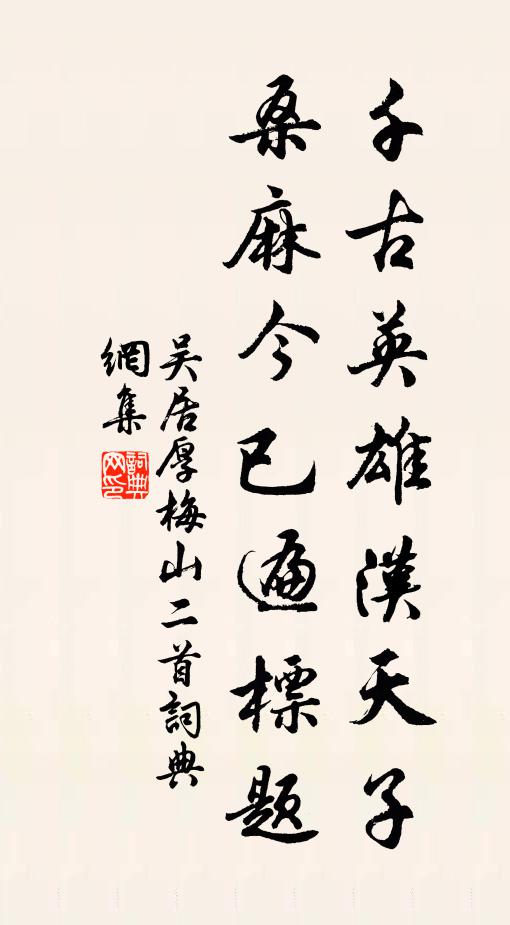 千古英雄漢天子
桑麻今已遍標題
吴居厚梅山二首詞典
網集
詞典
网印